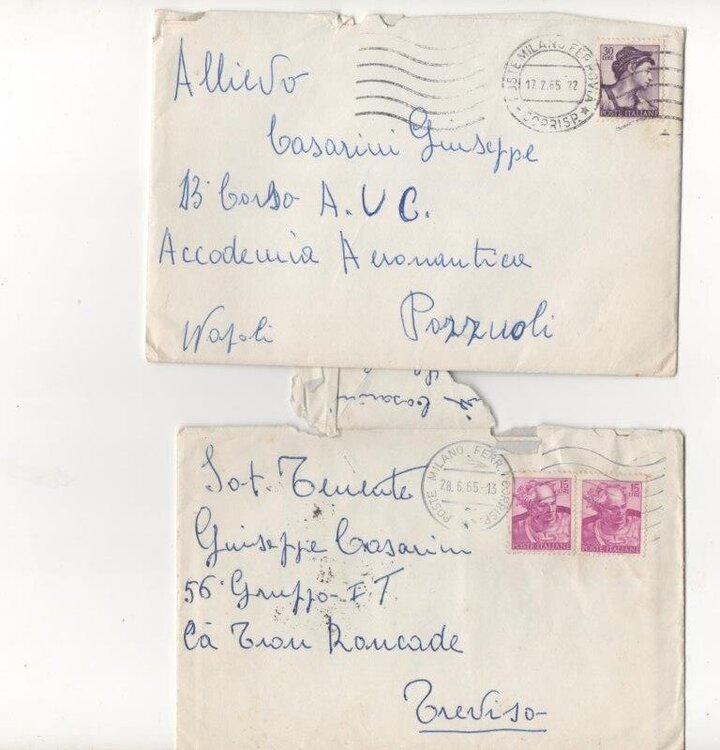 POSTE MILANO FERROVIA
17.2.65 22
CORRISP.
30
LIRE
POSTE ITALIANE
Allievo
Casarini Giuseppe
13° Corso A.U C.
Accademia Aeronautica
Napoli Pozzuoli
Casarini
POSTE MILANO FERR. CORRISP.
28.6.65-13
15
LIRE
POSTE ITALIANE
15
LIRE
POSTE ITALIANE
Sot. Tenente
Giuseppe Casarini
56° Gruppo I.T.
Cà Tron Roncade
Treviso